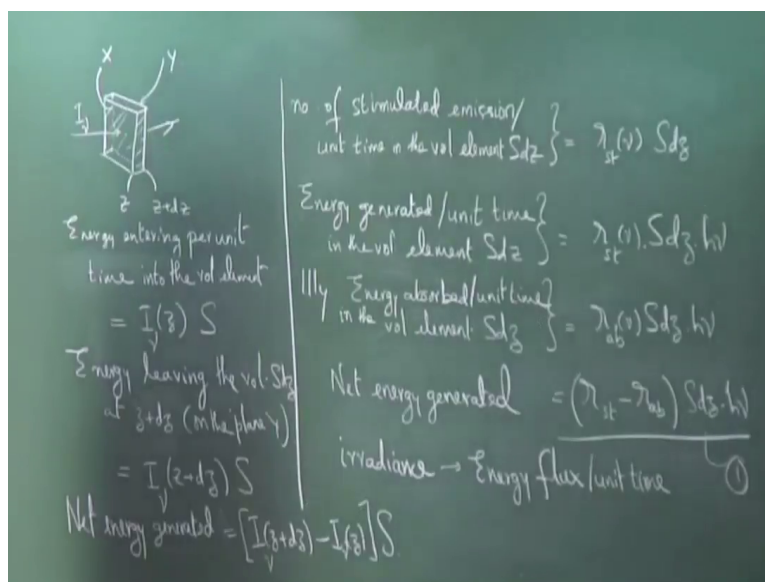 X
Y
I_ν
z z+dz
Energy entering per unit
time into the vol element
= I_ν(z) S
Energy leaving the vol. Sdz
at z+dz (on the plane Y)
= I_ν(z+dz) S
Net energy generated = [I_ν(z+dz) - I_ν(z)] S
no of stimulated emission/
unit time in the vol element Sdz } = r_st(ν) Sdz
Energy generated/unit time
in the vol element Sdz } = r_st(ν). Sdz. hν
Illly Energy absorbed/unit time
in the vol element Sdz } = r_ab(ν) Sdz hν
Net energy generated = (r_st - r_ab) Sdz. hν
①
irradiance → Energy flux/unit time